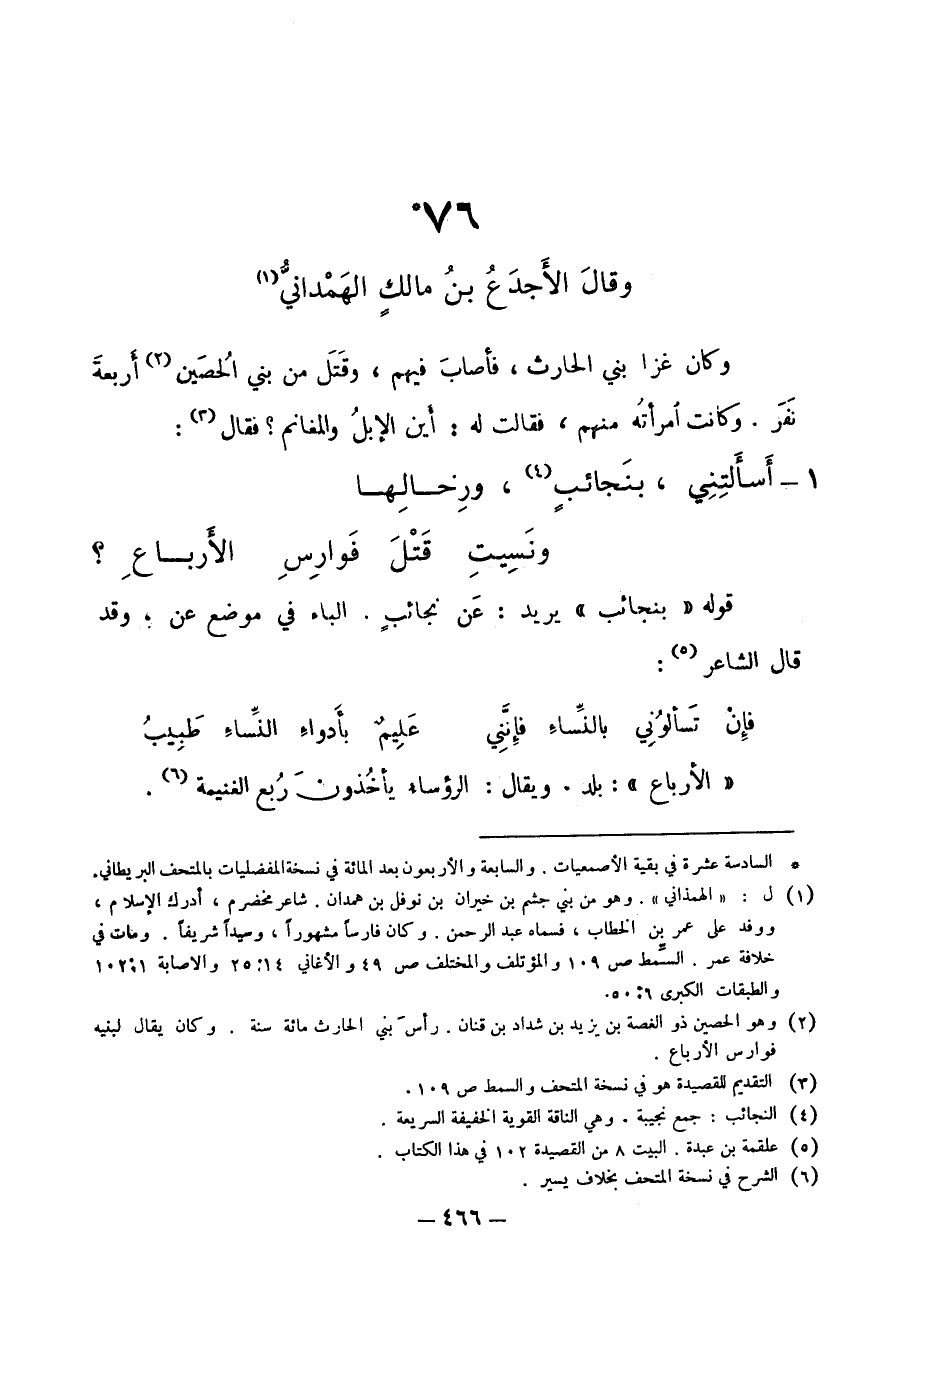 ٧٦*
وقالَ الأَجدَعُ بنُ مالكٍ الهَمْدانيُّ(١)
وكان غزا بني الحارث ، فأصابَ فيهم ، وقَتَل من بني الحُصَين(٢) أربعةَ
نَفَر . وكانت امرأتُه منهم ، فقالت له : أين الإبلُ والمغانم ؟ فقال(٣) :
١ – أَسأَلتِنِي ، بنَجائبٍ(٤) ، ورِحالِها
ونَسِيتِ قَتْلَ فَوارِسِ الأَرباعِ ؟
قوله « بنجائب » يريد : عَن نجائبٍ . الباء في موضع عن ، وقد
قال الشاعر(٥) :
فإِنْ تَسألوني بالنِّساءِ فإِنَّني عَلِيمٌ بأَدواءِ النِّساءِ طَبِيبُ
« الأرباع » : بلد . ويقال : الرؤساء يأخُذونَ رُبع الغنيمة(٦) .
* السادسة عشرة في بقية الأصمعيات . والسابعة والأربعون بعد المائة في نسخة المفضليات بالمتحف البريطاني.
(١) ل : « الهمذاني » . وهو من بني جشم بن خيران بن نوفل بن همدان . شاعر مخضرم ، أدرك الإسلام ،
ووفد على عمر بن الخطاب ، فسماه عبد الرحمن . وكان فارساً مشهوراً ، وسيداً شريفاً . ومات في
خلافة عمر . السِّمط ص ١٠٩ والمؤتلف والمختلف ص ٤٩ والأغاني ١٤: ٢٥ والاصابة ١: ١٠٢
والطبقات الكبرى ٦: ٥٠.
(٢) وهو الحصين ذو الغصة بن يزيد بن شداد بن قنان . رأس بني الحارث مائة سنة . وكان يقال لبنيه
فوارس الأرباع .
(٣) التقديم للقصيدة هو في نسخة المتحف والسمط ص ١٠٩ .
(٤) النجائب : جمع نجيبة . وهي الناقة القوية الخفيفة السريعة .
(٥) علقمة بن عبدة . البيت ٨ من القصيدة ١٠٢ في هذا الكتاب .
(٦) الشرح في نسخة المتحف بخلاف يسير .
– ٤٦٦ –